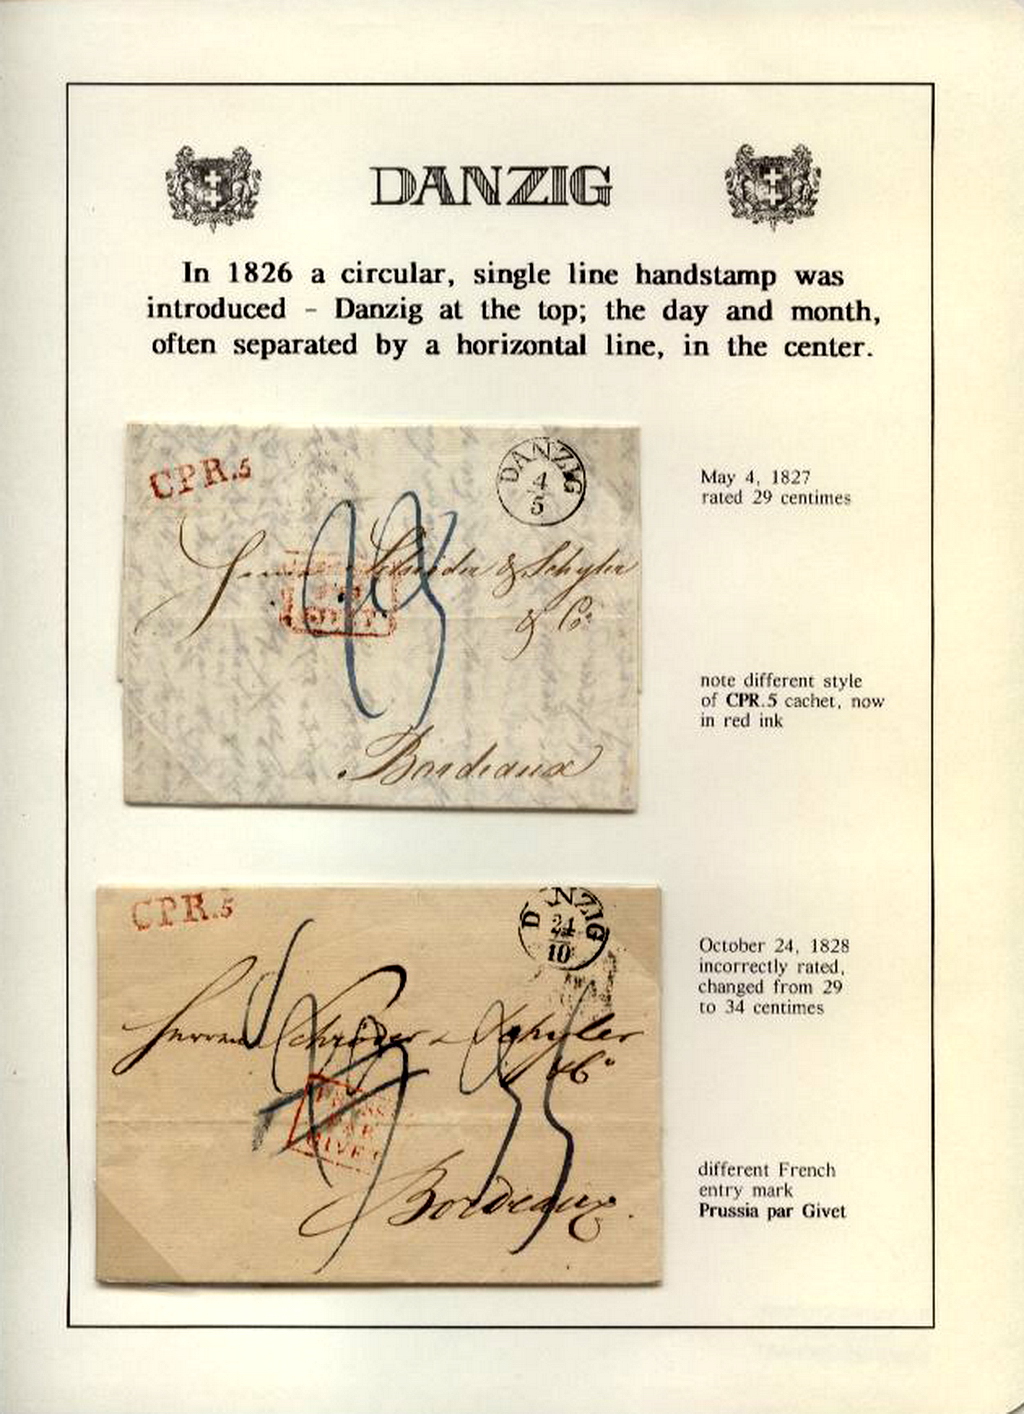 DANZIG
In 1826 a circular, single line handstamp was
introduced – Danzig at the top; the day and month,
often separated by a horizontal line, in the center.
CPR.5
DANZIG
4
5
& Schyler
& Co
Bordeaux
May 4, 1827
rated 29 centimes
note different style
of CPR.5 cachet, now
in red ink
CPR.5
DANZIG
24
10
Herren Schröder & Schyler
& Co
PAR
GIVET
Bordeaux.
October 24, 1828
incorrectly rated,
changed from 29
to 34 centimes
different French
entry mark
Prussia par Givet